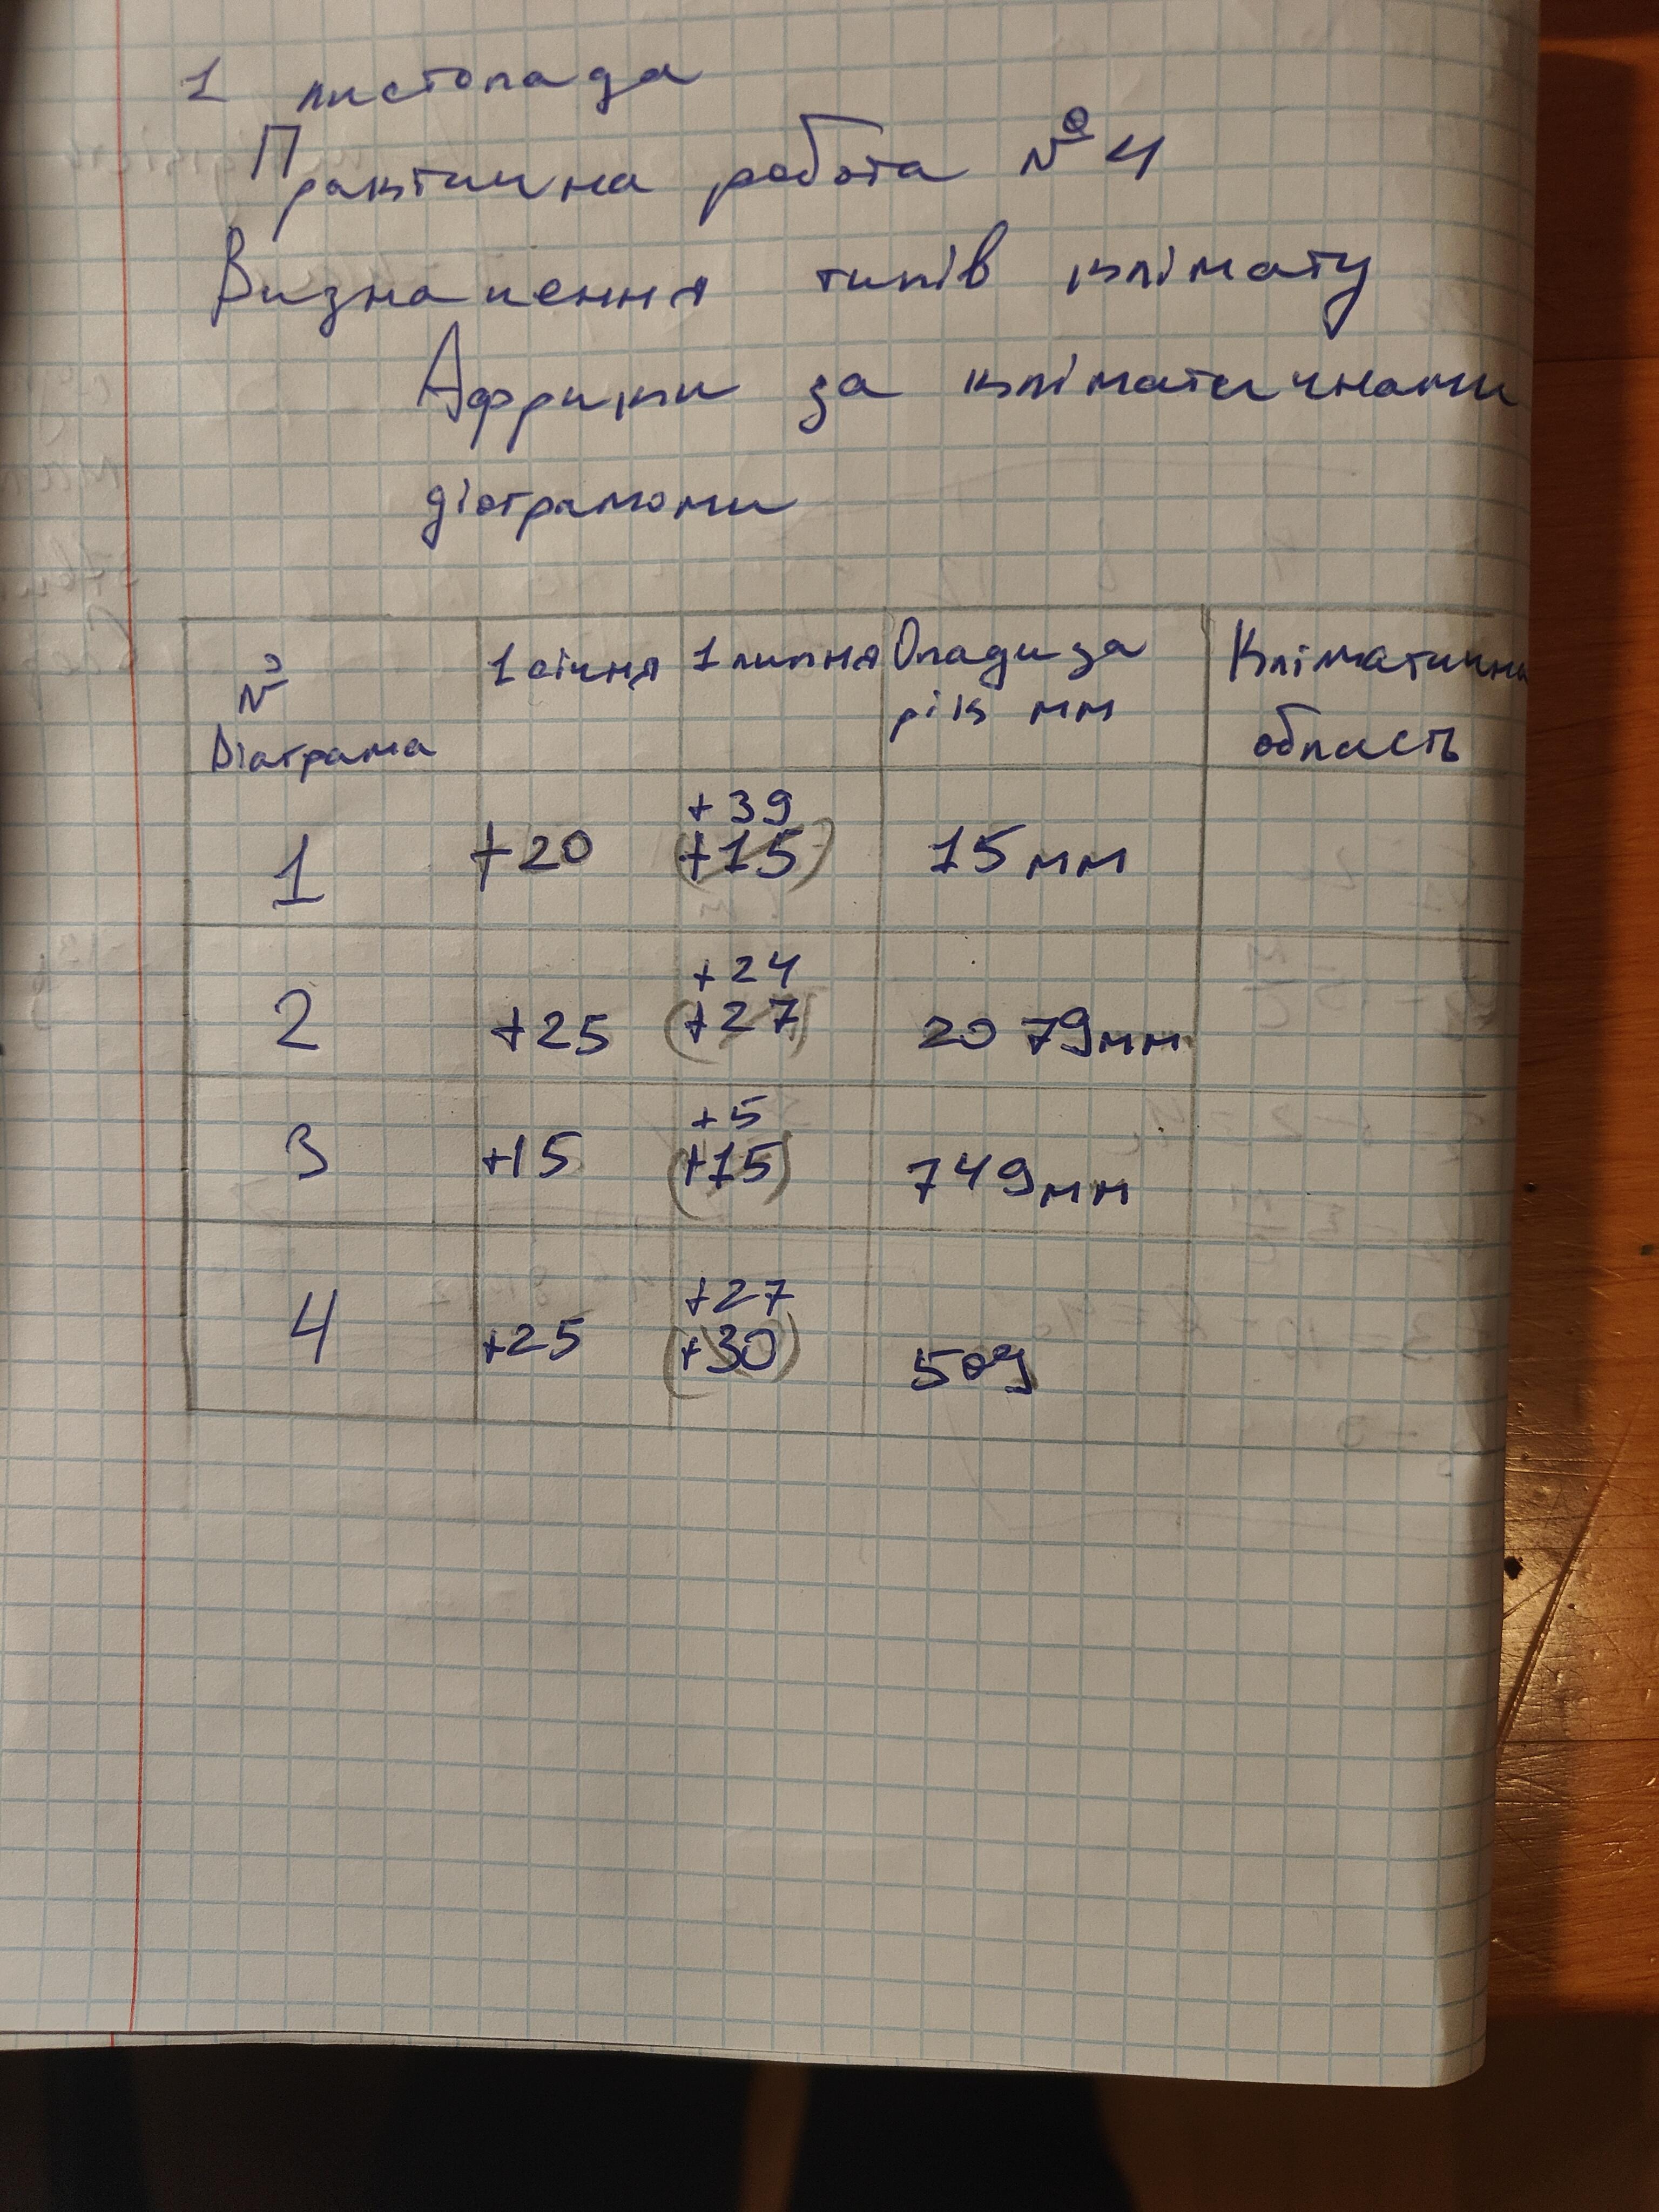 1 листопада
Практична робота № 4
Визначення типів клімату
Африки за кліматичнами
діаграмами
№ Діаграма 1 січня 1 липня Опади за рік мм Кліматична область
1 +20 +39 (+15) 15мм
2 +25 +24 (+27) 2079мм
3 +15 +5 (+15) 749мм
4 +25 +27 (+30) 509